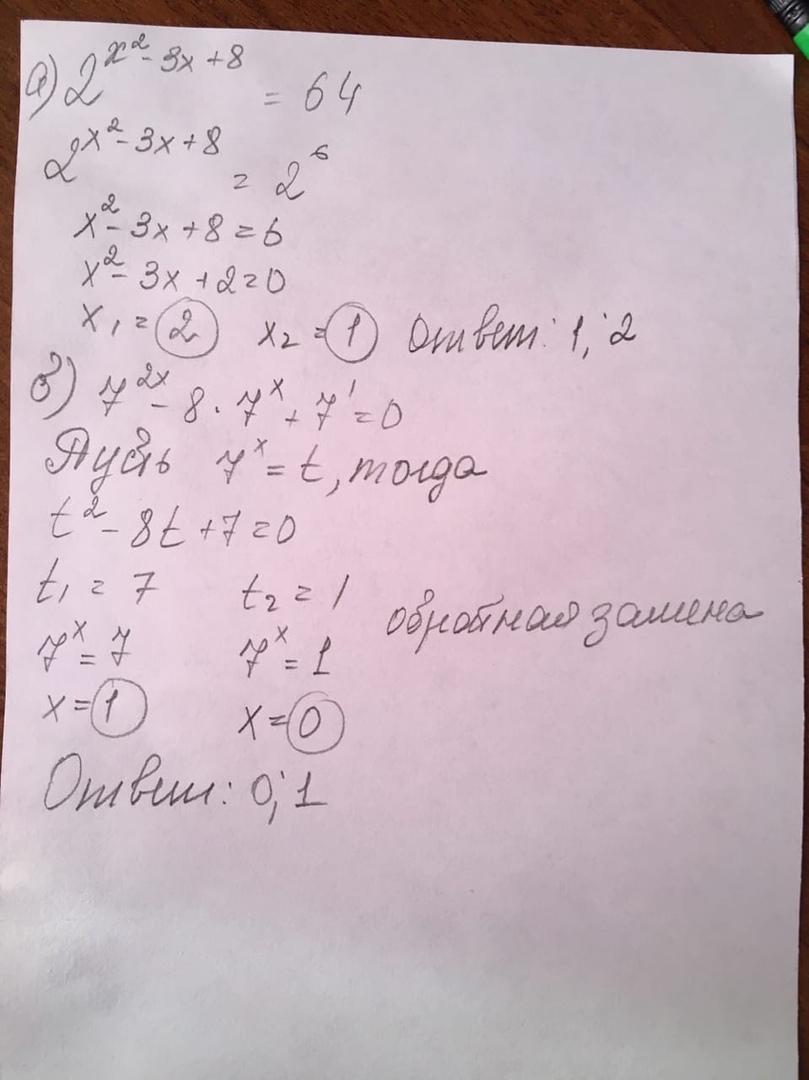 а) 2^{x^2 - 3x + 8} = 64
2^{x^2 - 3x + 8} = 2^6
x^2 - 3x + 8 = 6
x^2 - 3x + 2 = 0
x_1 = 2 x_2 = 1 Ответ: 1; 2
б) 7^{2x} - 8 · 7^x + 7^1 = 0
Пусть 7^x = t, тогда
t^2 - 8t + 7 = 0
t_1 = 7 t_2 = 1 обратная замена
7^x = 7 7^x = 1
x = 1 x = 0
Ответ: 0; 1